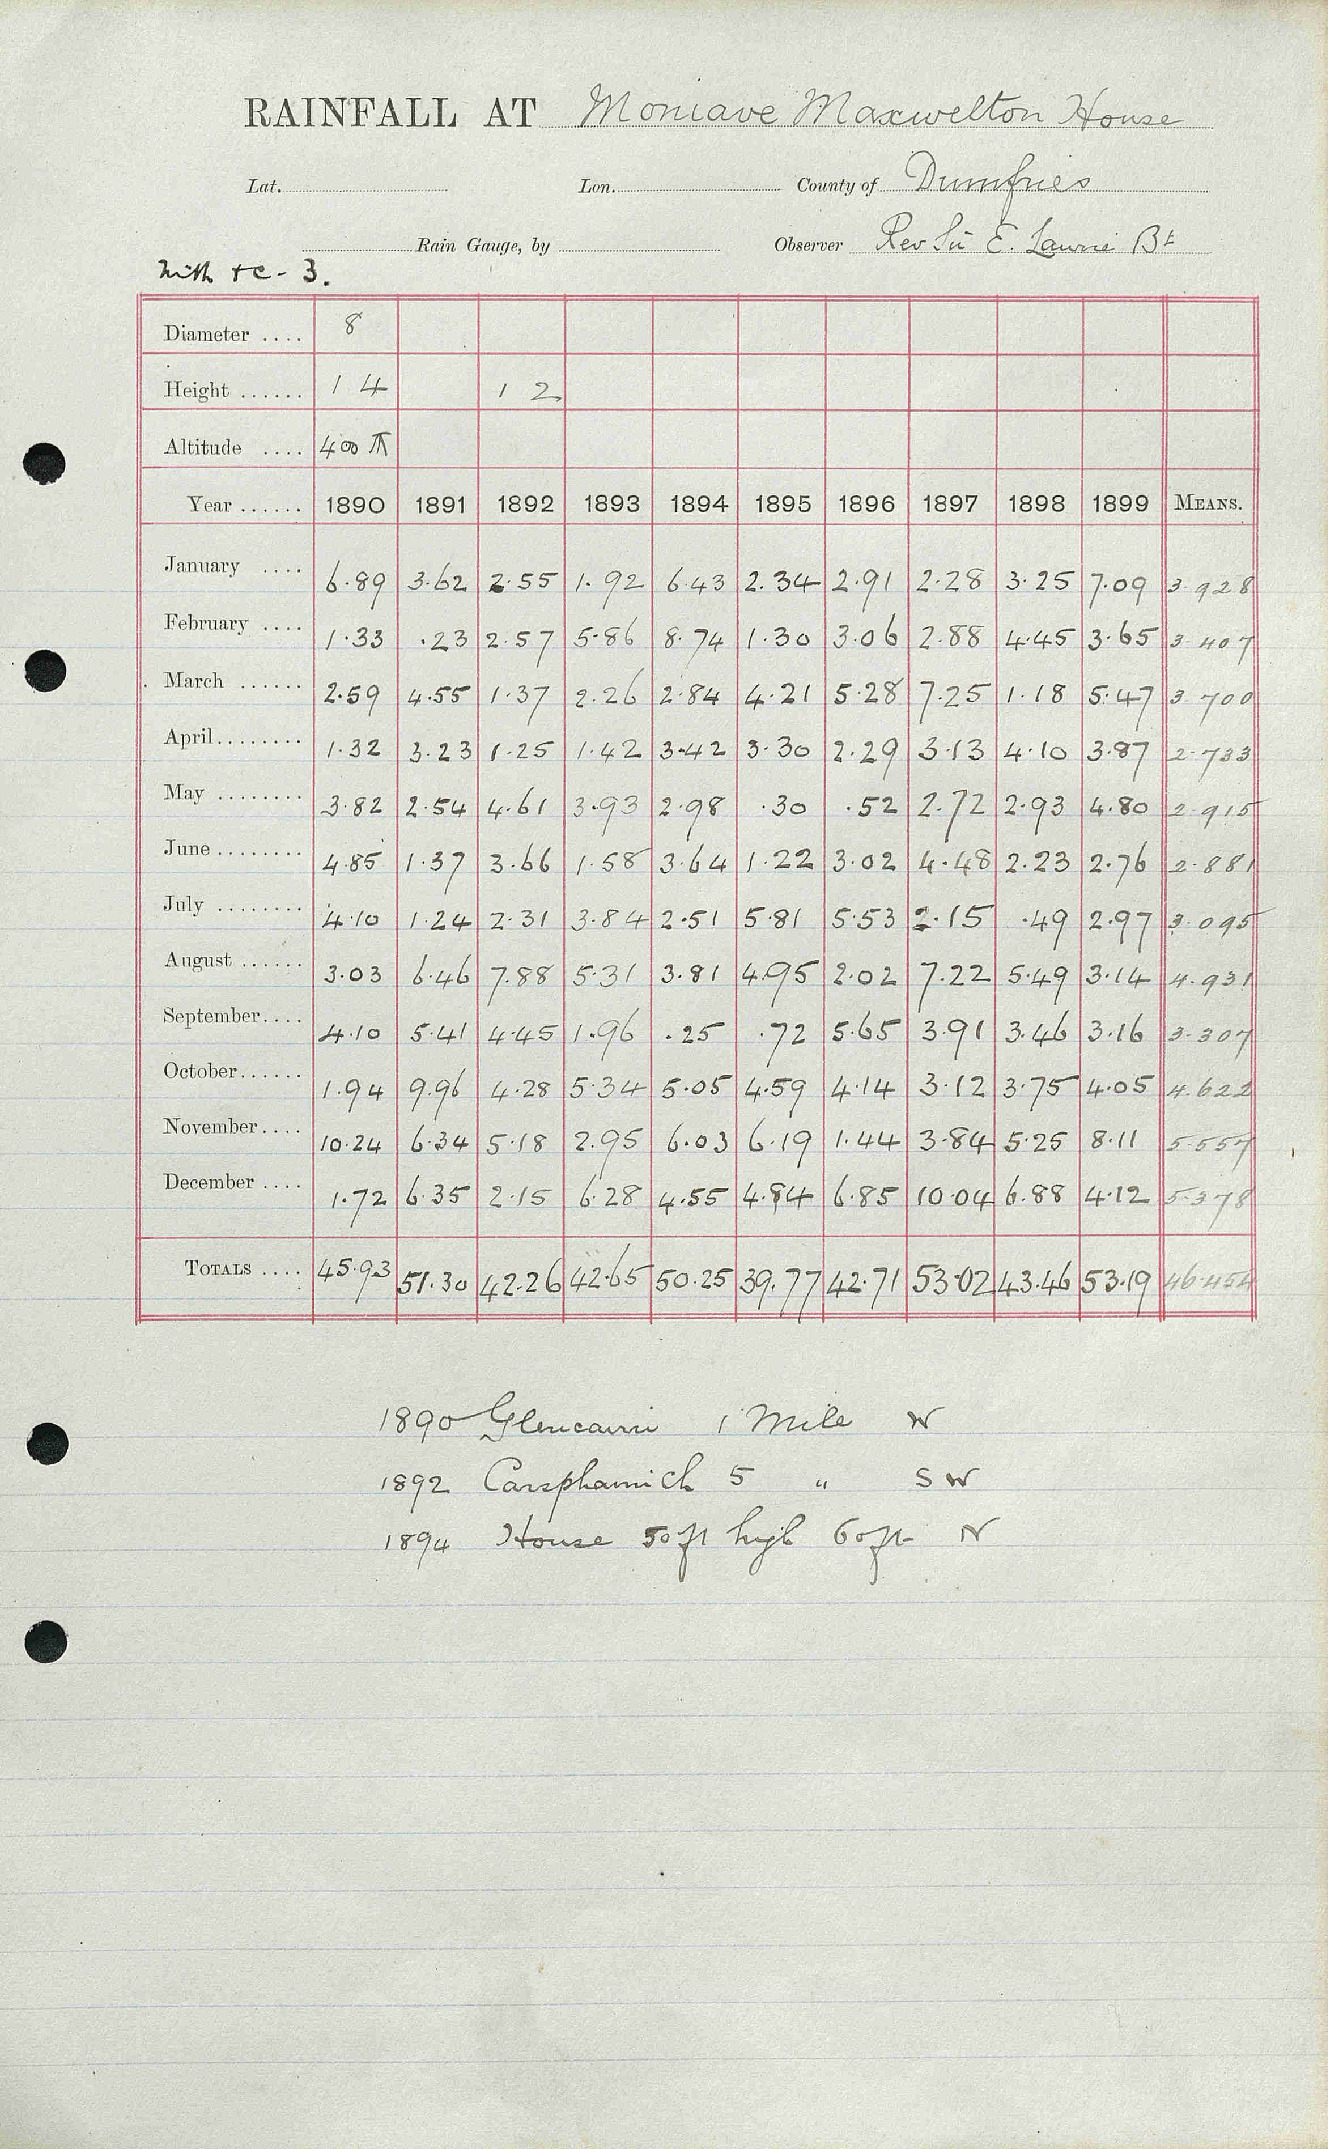 RAINFALL AT Moniave Maxwelton House
Lat. Lon. County of Dumfries
Rain Gauge, by Observer Rev Sir E. Laurie Bt
Nith +c - 3.
Diameter .... 8
Height ...... 1 4 1 2
Altitude .... 400 ft
Year ...... 1890 1891 1892 1893 1894 1895 1896 1897 1898 1899 MEANS.
January .... 6.89 3.62 2.55 1.92 6.43 2.34 2.91 2.28 3.25 7.09 3.928
February .... 1.33 .23 2.57 5.86 8.74 1.30 3.06 2.88 4.45 3.65 3.407
March ...... 2.59 4.55 1.37 2.26 2.84 4.21 5.28 7.25 1.18 5.47 3.700
April........ 1.32 3.23 1.25 1.42 3.42 3.30 2.29 3.13 4.10 3.87 2.733
May ........ 3.82 2.54 4.61 3.93 2.98 .30 .52 2.72 2.93 4.80 2.915
June........ 4.85 1.37 3.66 1.58 3.64 1.22 3.02 4.48 2.23 2.76 2.881
July ........ 4.10 1.24 2.31 3.84 2.51 5.81 5.53 2.15 .49 2.97 3.095
August ...... 3.03 6.46 7.88 5.31 3.81 4.95 2.02 7.22 5.49 3.14 4.931
September.... 4.10 5.41 4.45 1.96 .25 .72 5.65 3.91 3.46 3.16 3.307
October...... 1.94 9.96 4.28 5.34 5.05 4.59 4.14 3.12 3.75 4.05 4.622
November.... 10.24 6.34 5.18 2.95 6.03 6.19 1.44 3.84 5.25 8.11 5.557
December .... 1.72 6.35 2.15 6.28 4.55 4.84 6.85 10.04 6.88 4.12 5.378
TOTALS .... 45.93 51.30 42.26 42.65 50.25 39.77 42.71 53.02 43.46 53.19 46.454
1890 Glencairn 1 Mile W
1892 Carsphairnich 5 " SW
1894 House 50ft high 60ft N